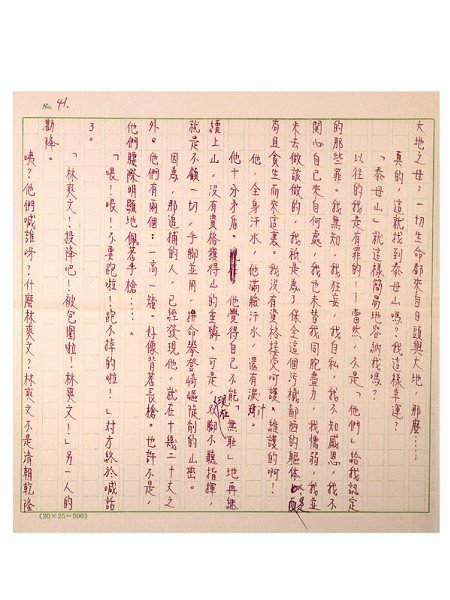 No. 41.
大地之母；一切生命都來自日頭與大地，那麼⋯⋯
真的，這就找到泰母山嗎？我這樣幸運？
「泰母山」就這樣簡易地容納我嗎？
以往的我是有罪的！——當然，不是「他們」給我認定
的那些罪。我無知，我狂妄，我自私，我不知感恩，我不
關心自己來自何處，我也未替我同胞盡力，我懦弱，我並
未去做該做的，我祇是為了保全這個污穢醜陋的軀体
而且貪生而來這裏。我沒有資格接受呵護、維護的啊！
他，全身汗水，他滿臉汗水，還有淚汁。
他十分矛盾。他覺得自己不能「無恥」地再繼
續上山，沒有資格獲得山的垂憐。可是，現在双腳不聽指揮，
就是不顧一切，手腳並用，拚命攀登崎嶇陡削的山巒。
因為，那追捕的人，已經發現他，就在十幾二十丈之
外。他們有兩個：一高一矮。好像背著長槍。也許不是，
他們腰際明顯地佩著手槍⋯⋯。
「喂！喂！不要跑啦！跑不掉的啦！」對方終於喊話
3。
「林爽文！投降吧！被包圍啦！林爽文！」另一人的
勸降。
咦？他們喊誰呀？什麼林爽文？林爽文不是清朝乾隆
(20×25=500)